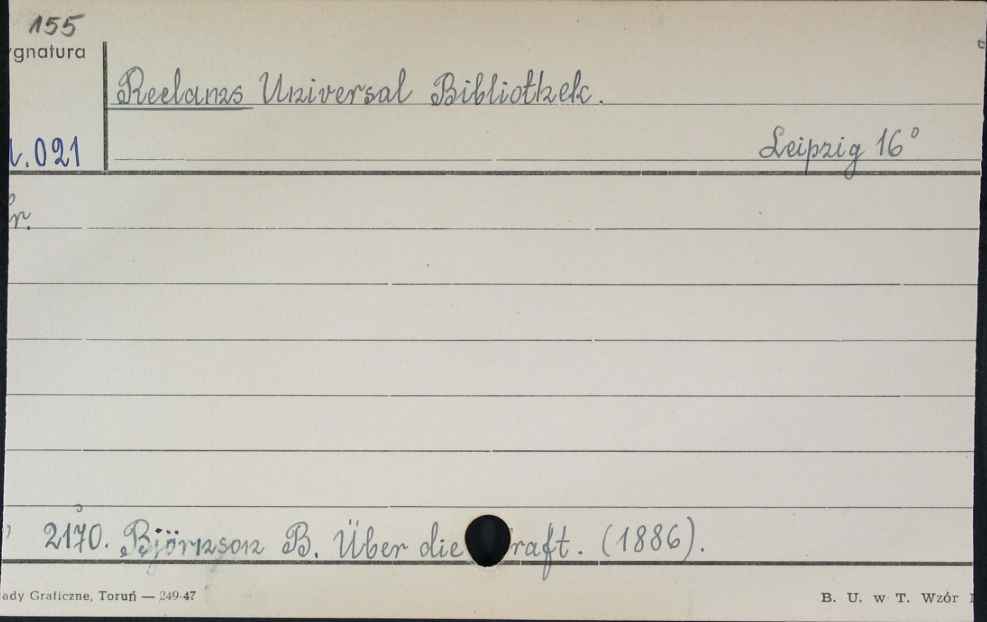 155
ygnatura
Reclams Universal Bibliothek.
.021
Leipzig 16°
r.
2170. Björnson B. Über die raft. (1886).
ady Graficzne, Toruń — 249-47
B. U. w T. Wzór